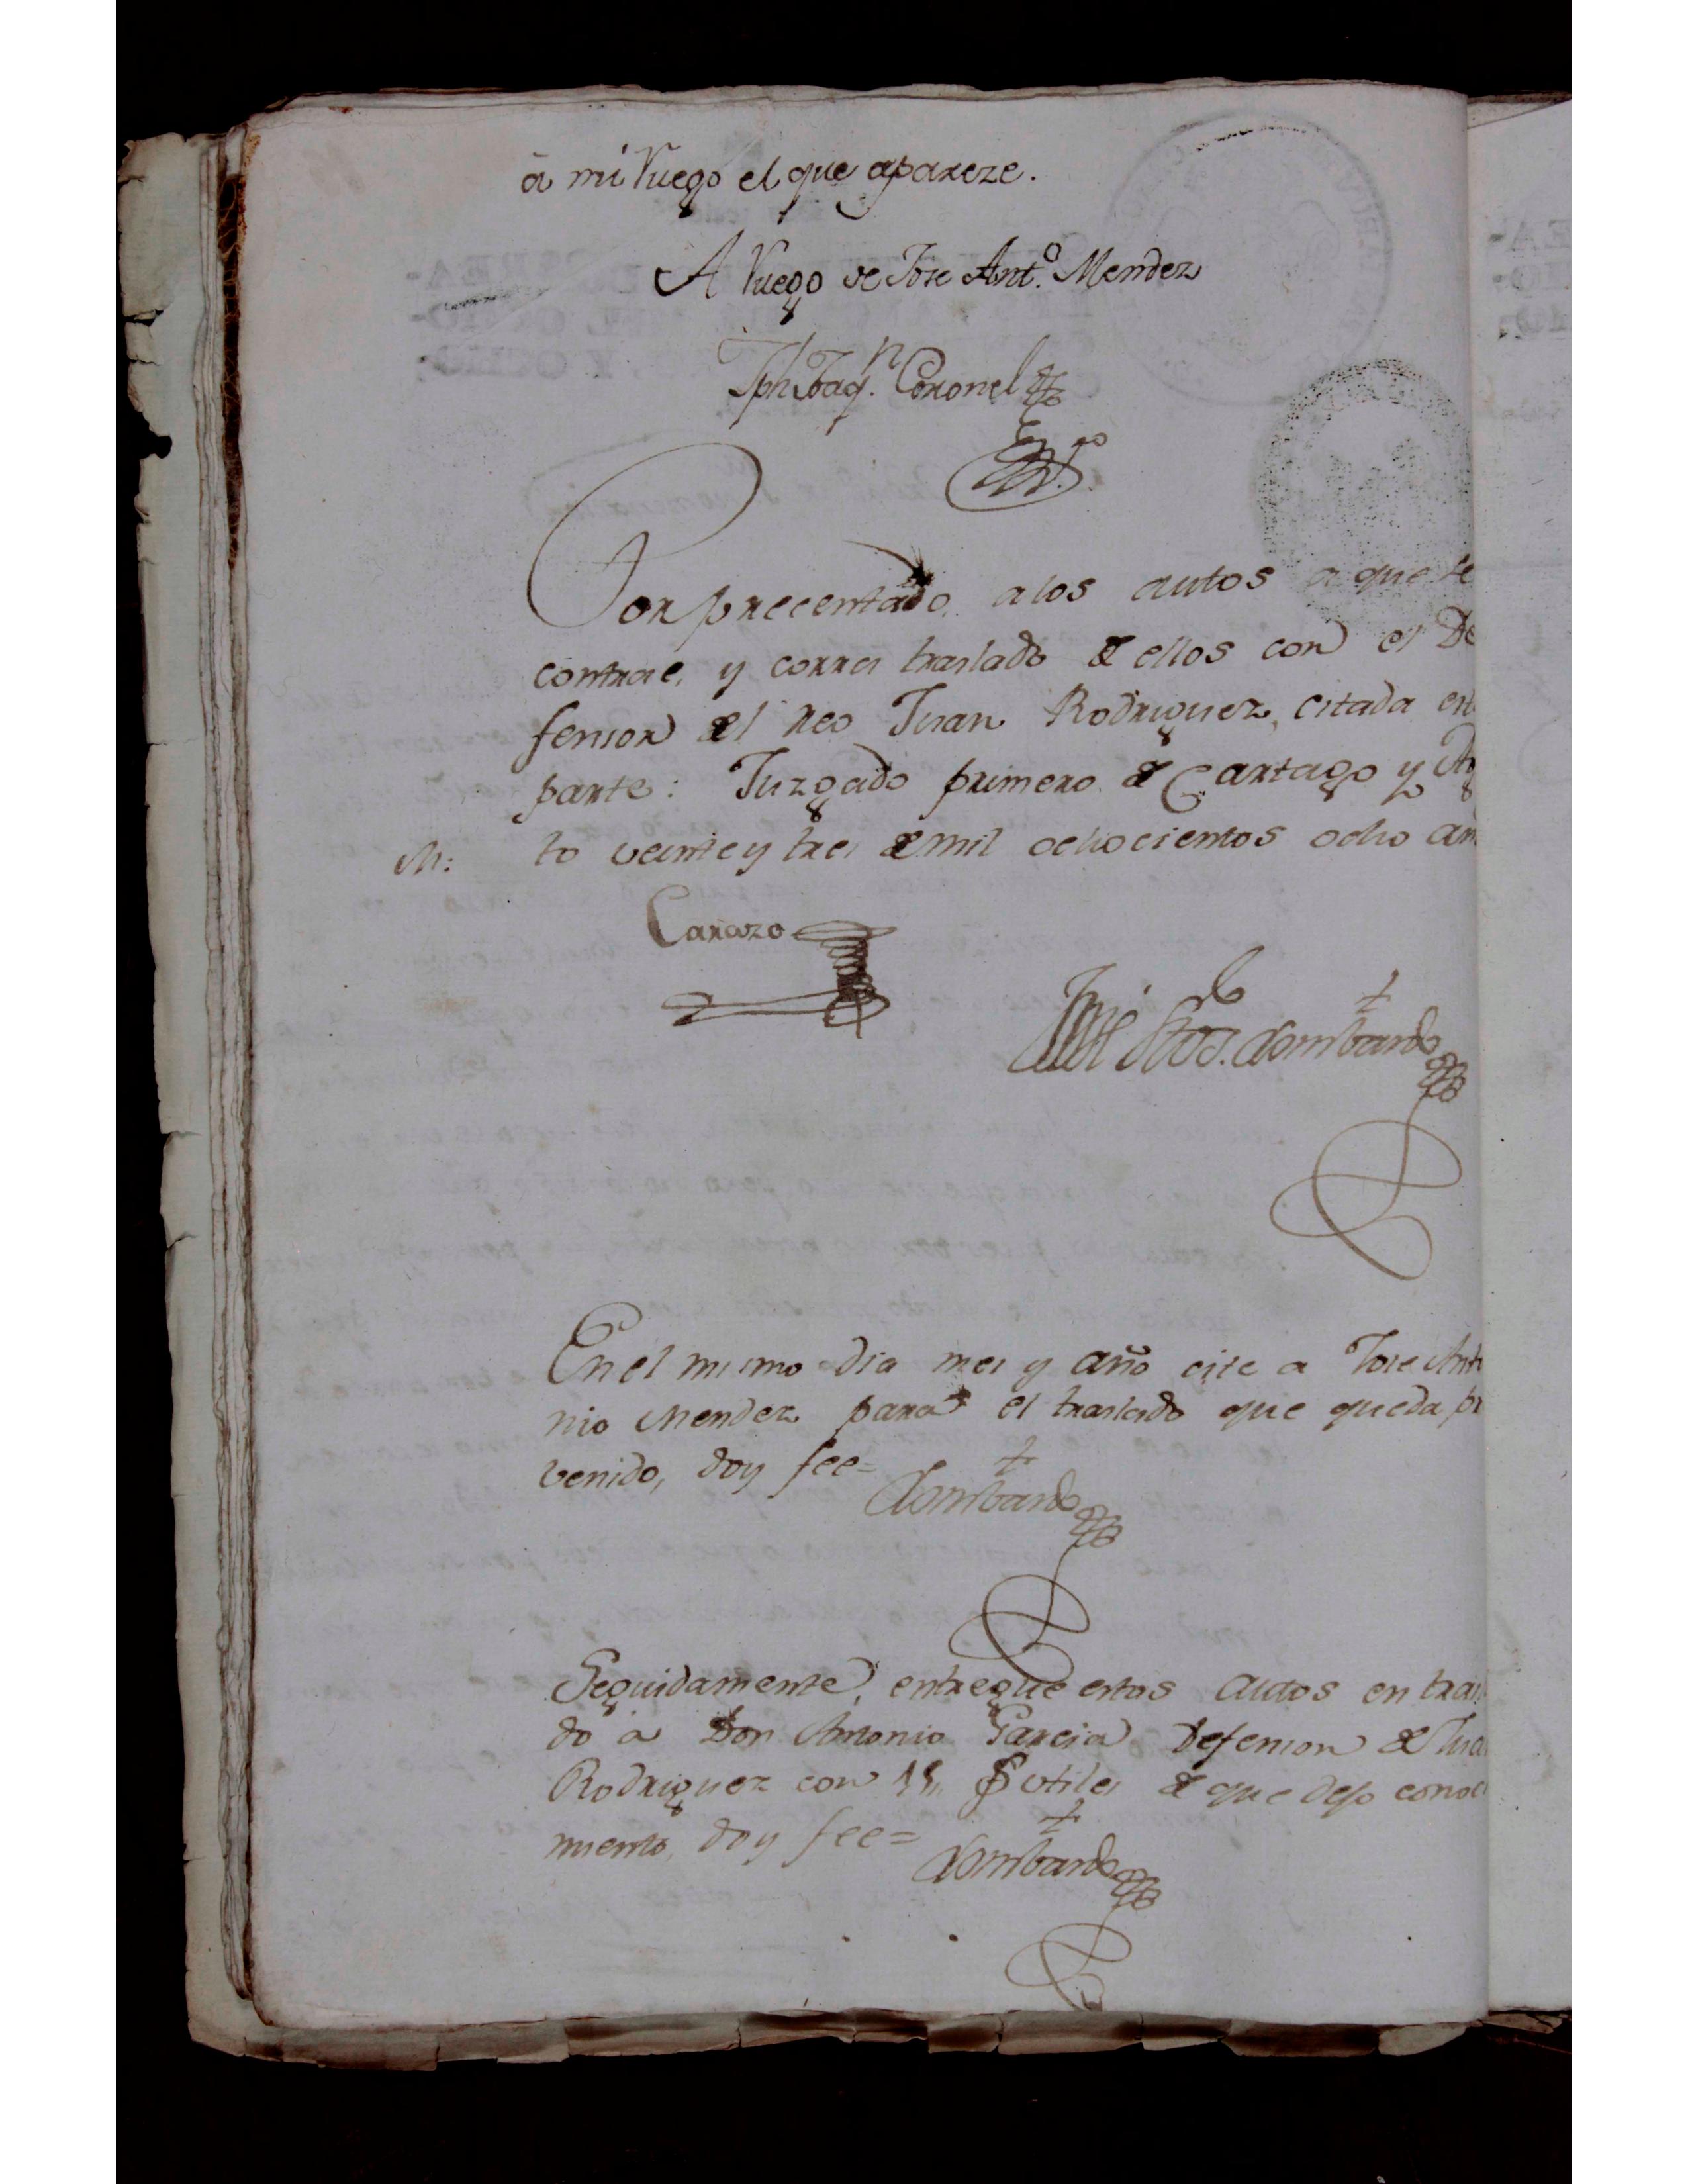 a mi Ruego el que apareze.
A Ruego de Jose Ant.º Mendez
Jph Joaq.n Coronel
Por precentado, a los autos a que se
contrae, y corra traslado de ellos con el De
fensor del reo Juan Rodriguez, citada est
parte: Juzgado primero de Cartago y Ag
M: to veinte y tres de mil ochocientos ocho añ
Carazo
Lombardo
En el mismo dia mes y año cite a Jose Anto
nio Mendez para el traslado que queda pr
venido, doy fee=
Lombardo
Seguidamente, entregue estos autos en trasl
do a Don Antonio Garcia Defensor de Jua
Rodriguez con utiles de que dejo conoci
miento, doy fee=
Lombardo